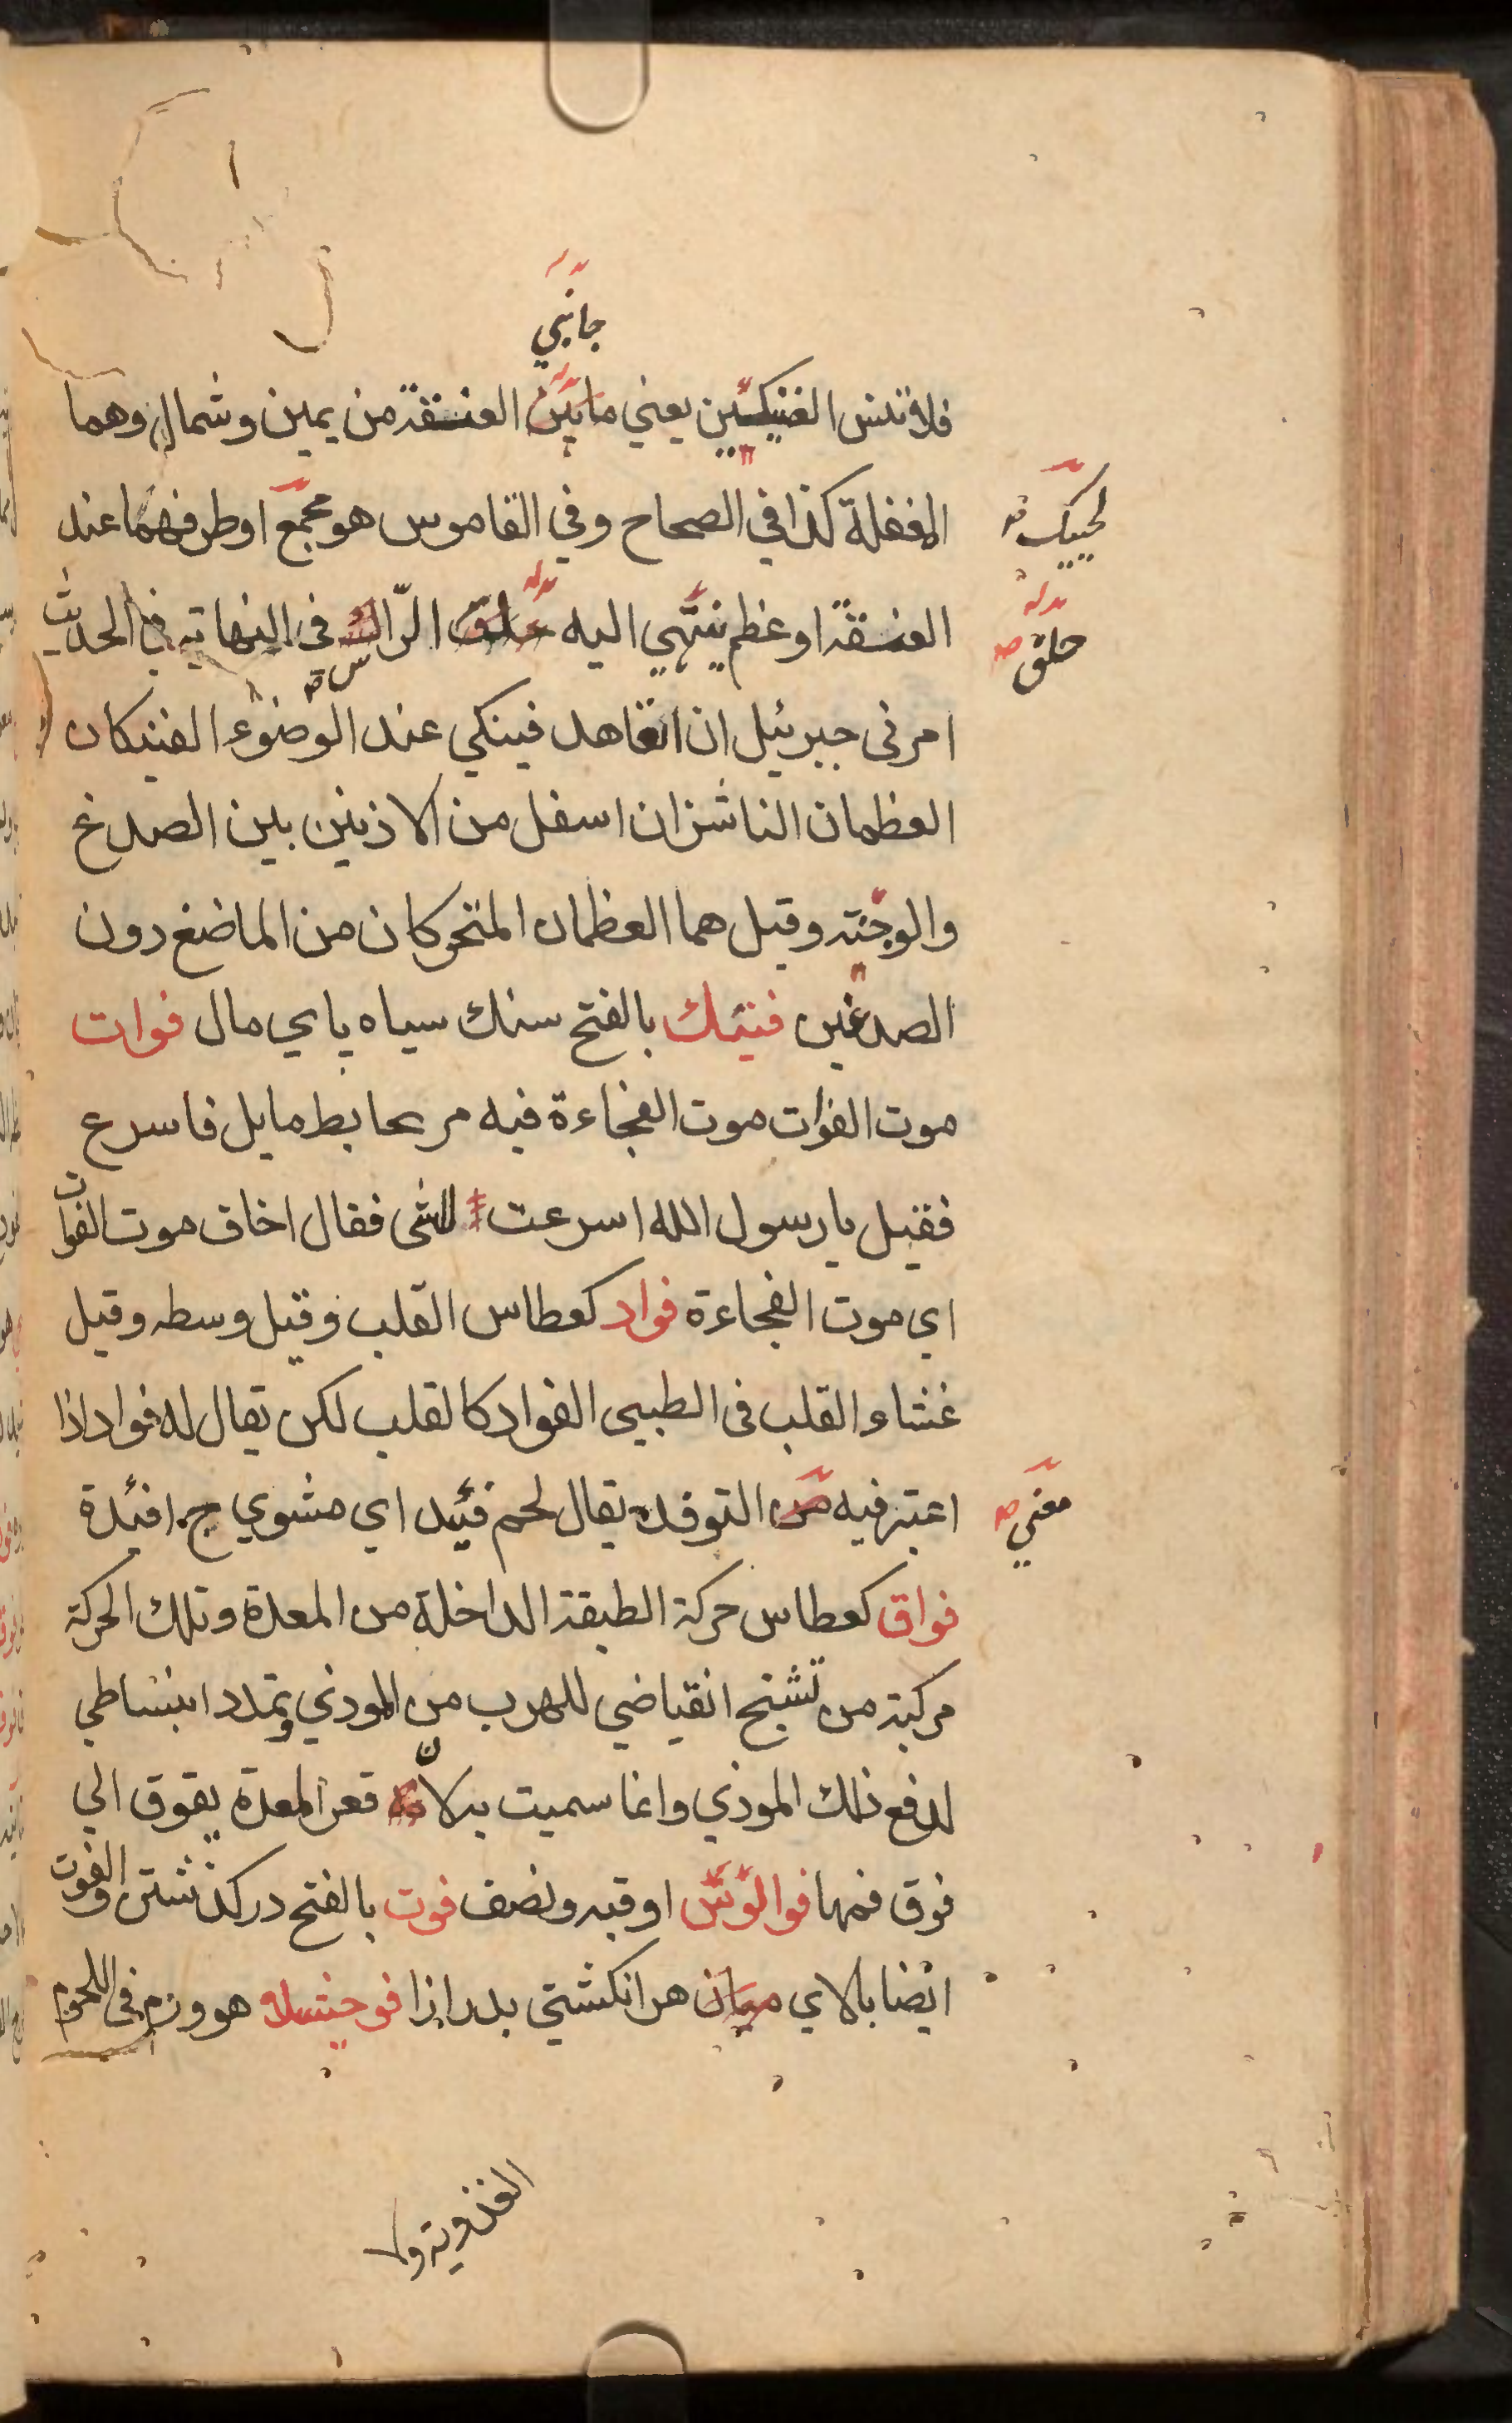 جانبي
فلا تنس الفنيكين يعني مابين العنفقة من يمين وشمال وهما
المغفلة كذا في الصحاح وفي القاموس هو مجمع اوطرفهما عند
لحييك
العنفقة او عظم ينتهي اليه حلق الراس في النهاية في الحديث
حلق صح
امرني جبرئيل ان اتعاهد فينكي عند الوضوء الفنيكان
العظمان الناشزان اسفل من الاذنين بين الصدغ
والوجنته وقيل هما العظمان المتحركان من الماضغ دون
الصدغين فنيك بالفتح سنك سياه پاي مال فوات
موت الفوات موت الفجاءة فيه مر بحايط مايل فاسرع
فقيل يا رسول الله اسرعت المشي فقال اخاف موت الفوات
اي موت الفجاءة فواد كعطاس القلب وقيل وسطه وقيل
غشاء القلب في الطبيي الفواد كالقلب لكن يقال له فواد اذا
اعتبر فيه التوفد يقال لحم فئيد اي مشوي ج افئدة
معني صح
فواق كعطاس حركة الطبقة الداخلة من المعدة وتلك الحركة
مركبة من تشنج انقياضي للهرب من الموذي وتمدد انبساطي
لدفع ذلك الموذي وانما سميت به لان قعر المعدة يفوق الي
فوق فمها فوالوس اوقيه ونصف فوت بالفتح در كذشتن والفوت
ايضا بالاي ميان هر انكشتي بدرازا فوجثلا هو ورم في اللحوم
الغذوية ولا